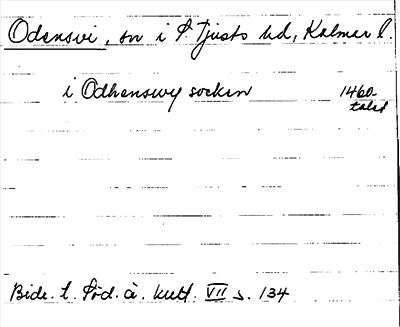 Odensvi, sn i S. Tjusts hd, Kalmar l.
i Odhenswy socken 1460-
talet
Bidr. t. Söd. å. kult. VII s. 134